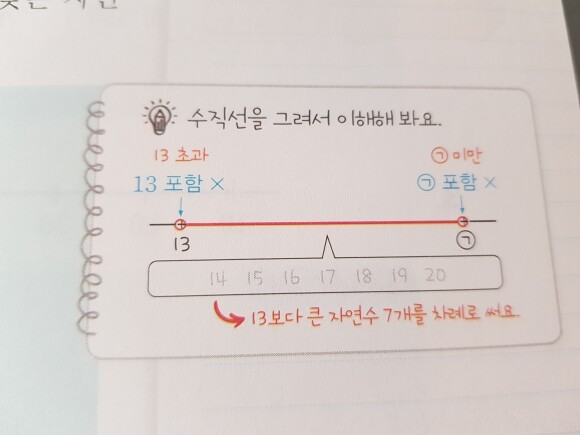 수직선을 그려서 이해해 봐요.
13 초과 ㉠ 미만
13 포함 × ㉠ 포함 ×
13 ㉠
14 15 16 17 18 19 20
13보다 큰 자연수 7개를 차례로 써요.